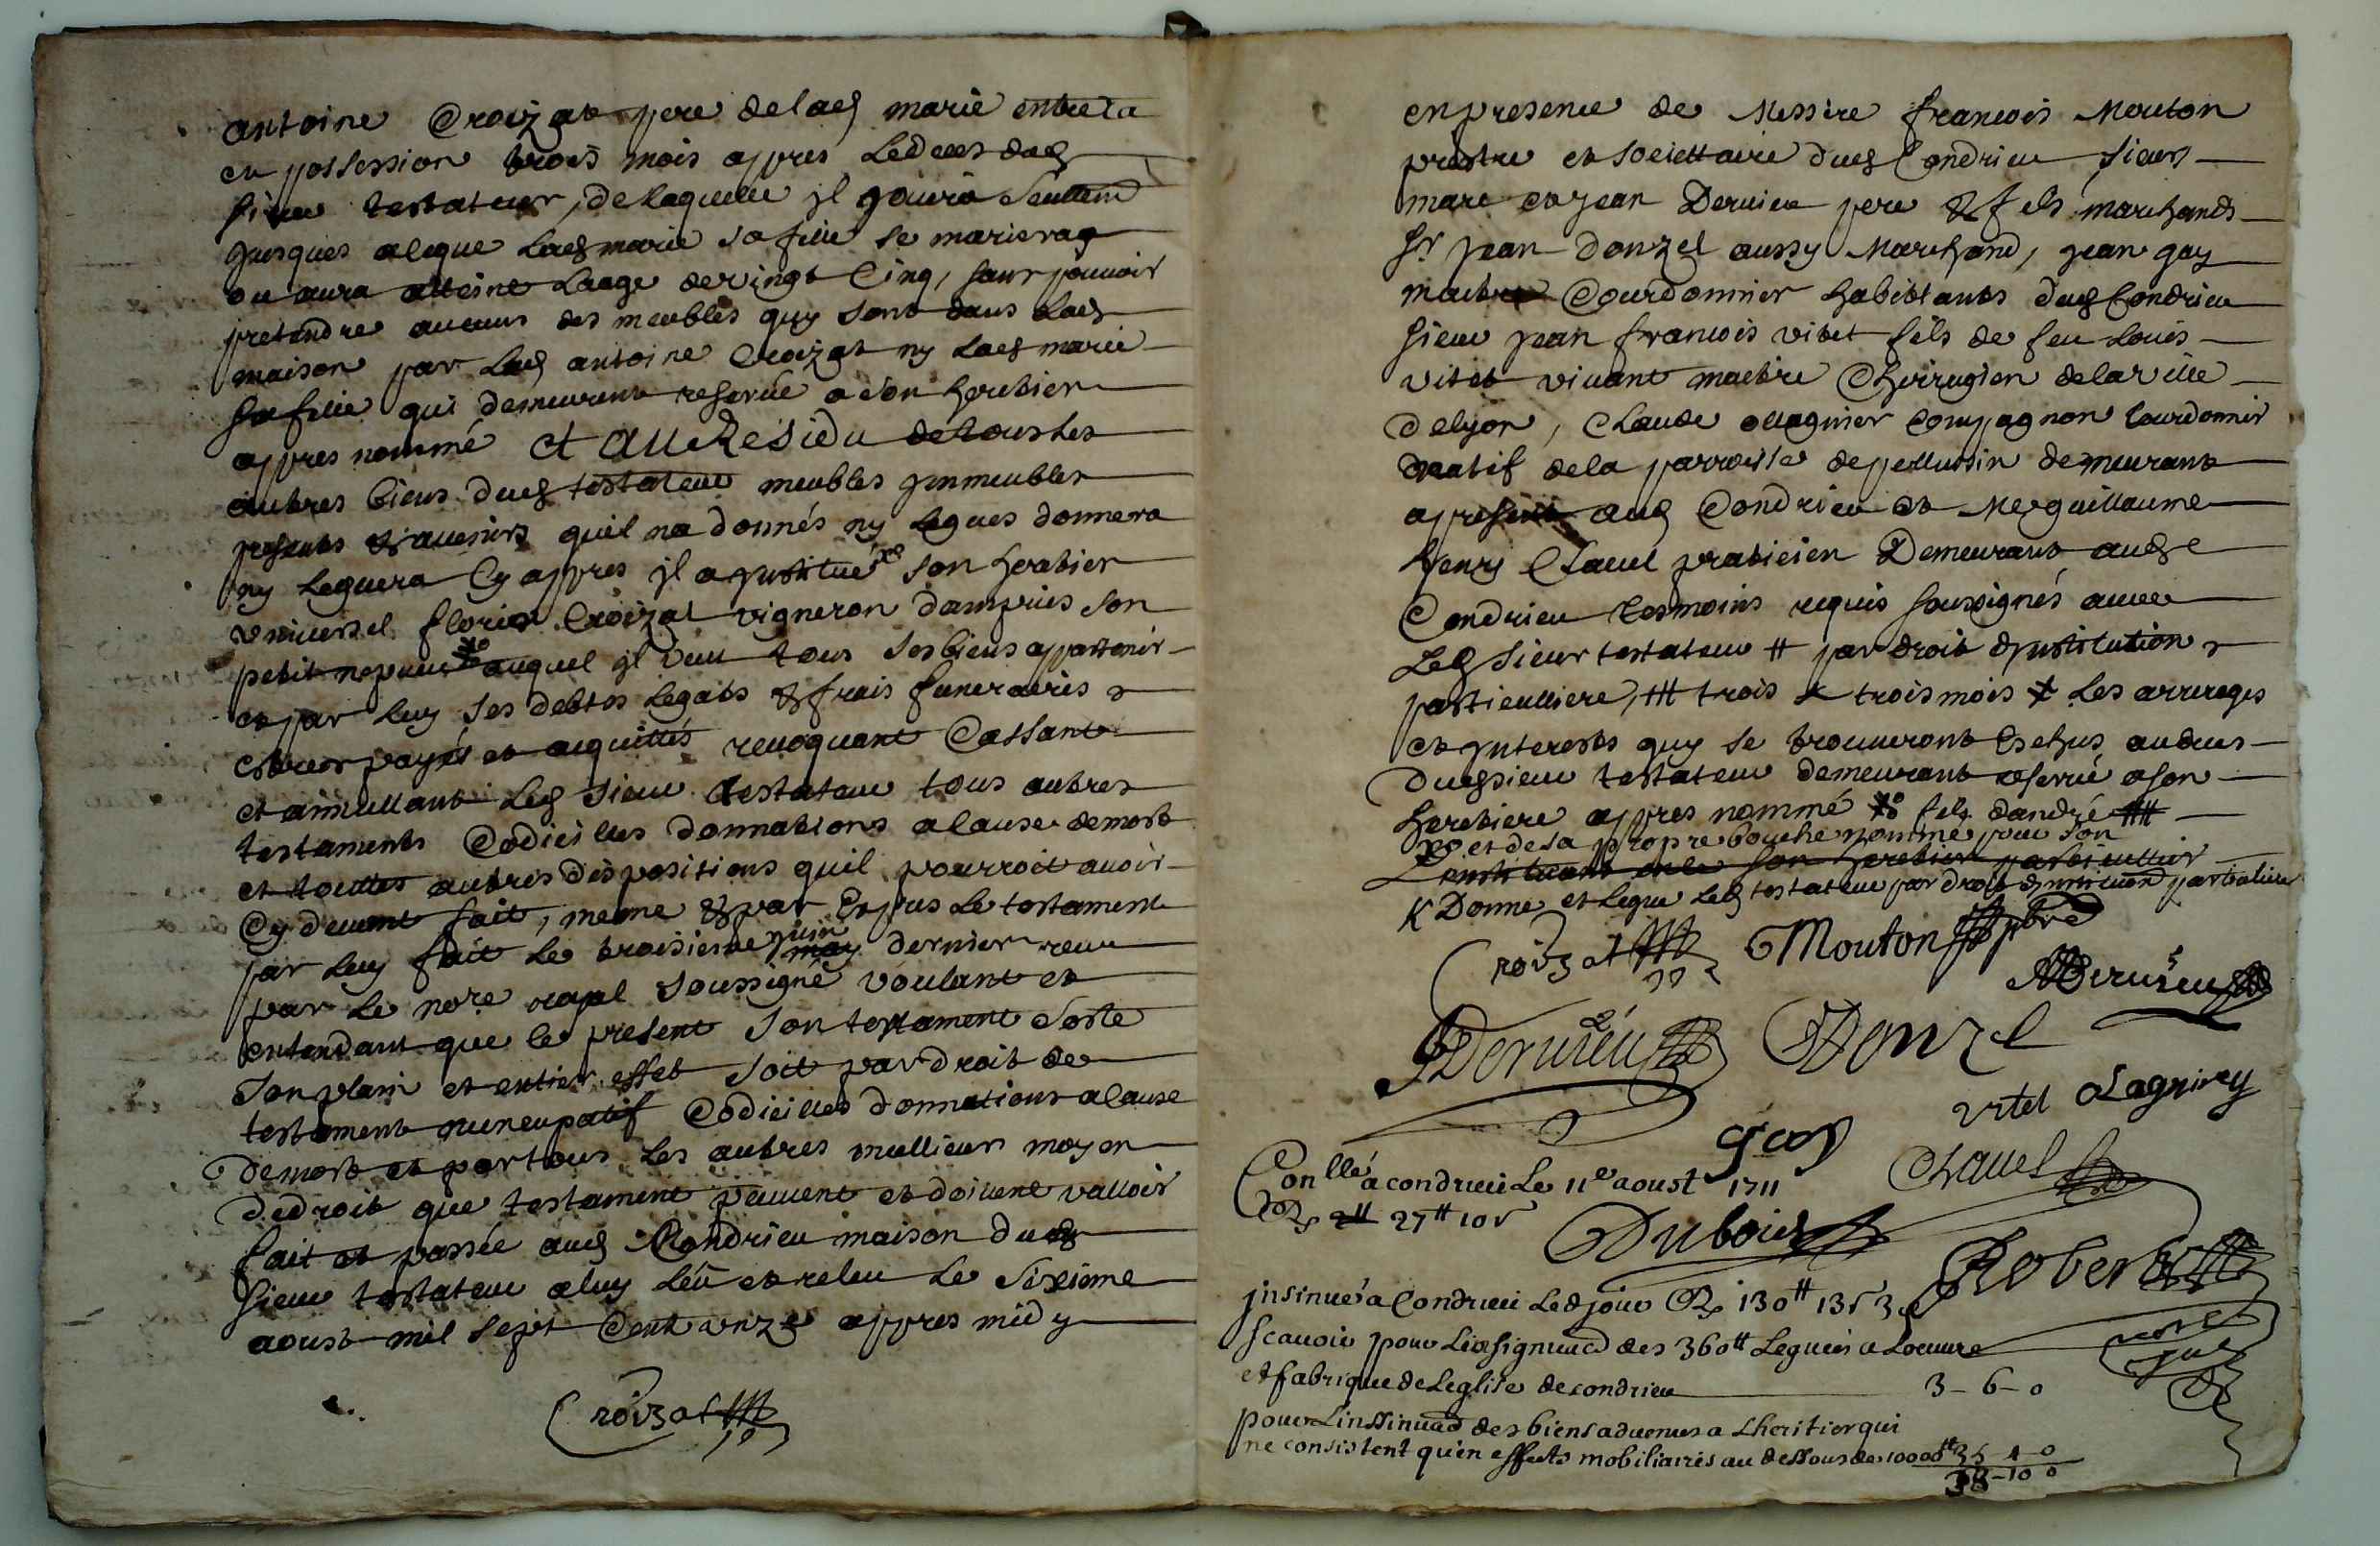 antoine Croizat pere de lad marie entrera
en possession trois mois appres le deces dud
sieur testateur, de laquelle jl jouira seullem
jusques a ce que lad marie sa fille se mariera
ou aura atteint laage de vingt cinq, sans pouvoir
pretendre aucuns des meubles quy sont dans lad
maison par led antoine Croizat ny lad marie
sa fille qui demeurent reservé a son heritier
appres nommé et au Residu de tous les
autres biens dud testateur meubles jmmeubles
presents & avenirs quil na donnés ny legues donnera
ny leguera Cy appres jl a justitué son heritier
universel florien Croizat vigneron dampuis son
petit nepveu auquel jl veut tous ses biens appartenir
et par luy ses debtes legats & frais funeraires
estres payés et acquittés revoquant Cassant
et annullant led sieur testateur tous autres
testaments Codicilles donnations a cause de mort
et touttes autres dispositions quil pourroit avoir
Cy devant fait, mesme & par Expres le testament
par luy fait le troisieme may juin dernier receu
par le nore royal soussigné voulant et
entendant que le present son testament sorte
son plain et entier effet soit par droit de
testament nuncupatif Codicilles donnations a cause
de mort et par tous les autres mellieurs moyen
de droit que testament peuvent et doivent valloir
fait et passée aud Condrieu maison dud
sieur testateur a luy leu et releu le sixieme
aoust mil sept Cent unze appres midy
Croizat
en presence de Messire francois Mouton
prestre et societtaire dud Condrieu sieurs
marc et jean Dervieu pere & fils marchands
sr jean donzel aussy Marchand, jean gay
maitre Courdonnier habittants dud Condrieu
sieur jean francois vitet fils de feu louis
vitet vivant maitre Chirrugien de la ville
de lyon, Claude ollagnier compagnon Courdonnir
natif de la parroisse de pellussin demeurant
a present aud Condrieu et Me guillaume
henry Chavel praticien Demeurant aud
Condrieu tesmoins requis soussignés avec
Led sieur testateur # par droit djnstitution
particulliere, ## trois x trois mois x les arrerages
et jnterests quy se trouveront escheus au deces
dud sieur testateur demeurant reservé a son
heretiere appres nommé xo fils dandré ##
xo et de sa propre bouche nommé pour son
instituant en le son heretier particullier
K Donne et legue led testateur par droit djnstitution particuliere
Croizat Mouton pbre
MDervieu
JDervieu Donzel
vitet olagniey
gay
Chavel
Conllé a condrieu Le 11e aoust 1711
R 27tt 10s
Dubois
Robert
jnsinué a Condrieu Led jour R 130tt 13s 3d
scavoir pour Linsignuaon des 360tt Legués a Loeuvre
et fabrique de Leglise de condrieu 3-6-0
pour Linssinuaon des biens advenus a Lheritier qui
ne consistent quen effects mobiliaires au dessous de 10000tt 35 4 0
38-10 0